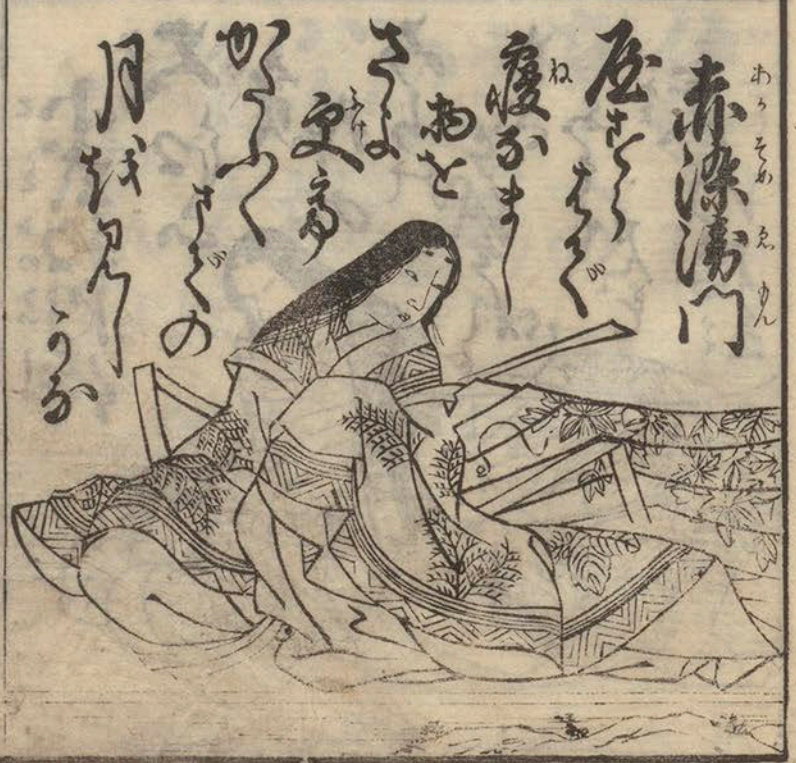 赤染衛門
あかそめゑもん
屋すら
はで
寝なまし
ね
物を
さよ
更て
ふけ
かたふく
までの
月を見し
かな